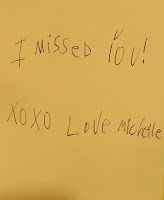 I missed You!
XOXO Love michelle